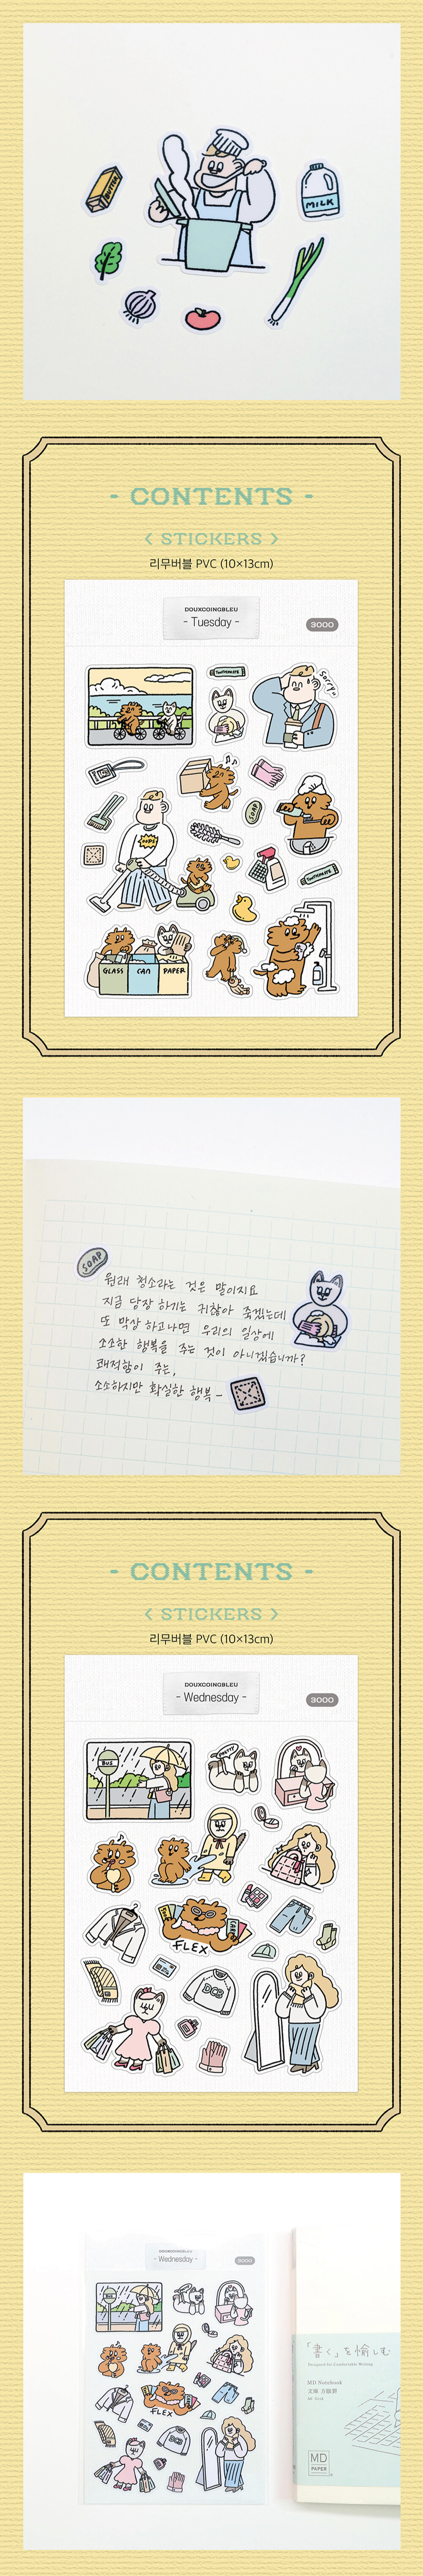 BUTTER
MILK
- CONTENTS -
< STICKERS >
리무버블 PVC (10×13cm)
DOUXCOINGBLEU
- Tuesday -
3000
TOOTHPASTE
Sorry..
SOAP
OOPS
TOOTHPASTE
GLASS
CAN
PAPER
SOAP
원래 청소라는 것은 말이지요
지금 당장 하기는 귀찮아 죽겠는데
또 막상 하고나면 우리의 일상에
소소한 행복을 주는 것이 아니겠습니까?
쾌적함이 주는,
소소하지만 확실한 행복-
- CONTENTS -
< STICKERS >
리무버블 PVC (10×13cm)
DOUXCOINGBLEU
- Wednesday -
3000
BUS
PRETTY
FLEX
DCB
DOUXCOINGBLEU
- Wednesday -
3000
BUS
FLEX
DCB
「書く」を愉しむ
Designed for Comfortable Writing
MD Notebook
文庫 方眼罫
A6 Grid
MD
PAPER